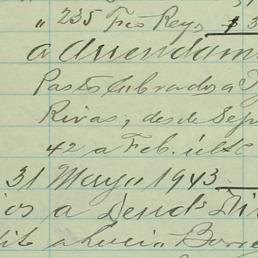 " 235 Tres Reyes $ 3
a Arrendam
Pasto Cobrado a
Rivas, desde Sep
42 a Feb. últ
31 Mayo 1943
os a Deud
dit a Lucia Borre